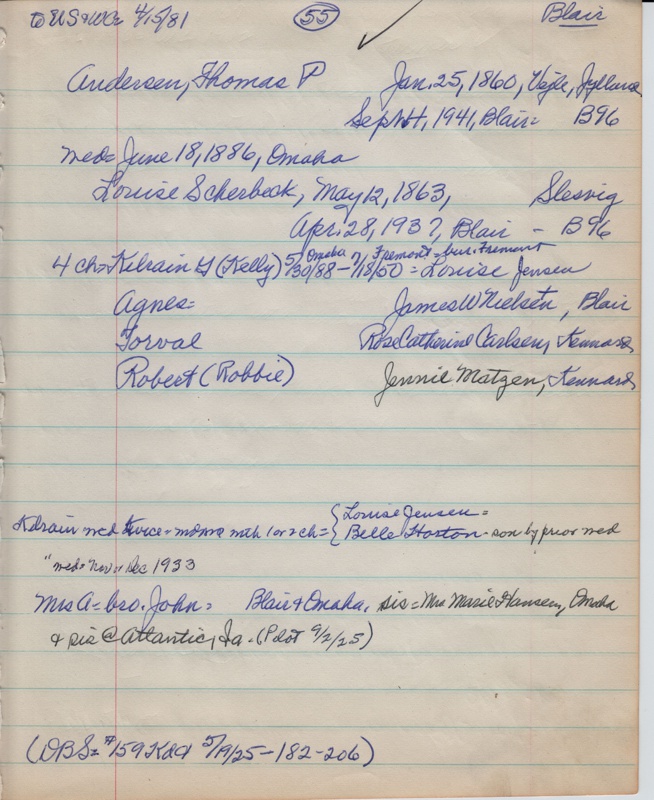 to US & WC 4/15/81 (55) Blair
Andersen, Thomas P Jan. 25, 1860, Vejle, Jylland
Sept 1941, Blair= B96
wed= June 18, 1886, Omaha
Louise Scherbeck, May 12, 1863, Slesvig
Apr. 28, 1937, Blair - B96
Omaha Fremont = bur. Fremont
4 ch= Kilrain G (Kelly) 5/30/88 - 7/18/50 = Louise Jensen
Agnes= James W Nielsen, Blair
Torval Rose Catherine Carlsen, Kennard
Robert (Robbie) Jennie Matzen, Kennard
Louise Jensen =
Kilrain wed twice = 1 or 2 ch = { Belle Horton - son by prior wed
" wed = Nov or Dec 1933
Mrs A = bro. John = Blair & Omaha, sis = Mrs Marie Hansen, Omaha
& sis @ Atlantic, Ia - (Pilot 9/2/25)
(DBS = #159 K&A 5/19/25 - 182-206)